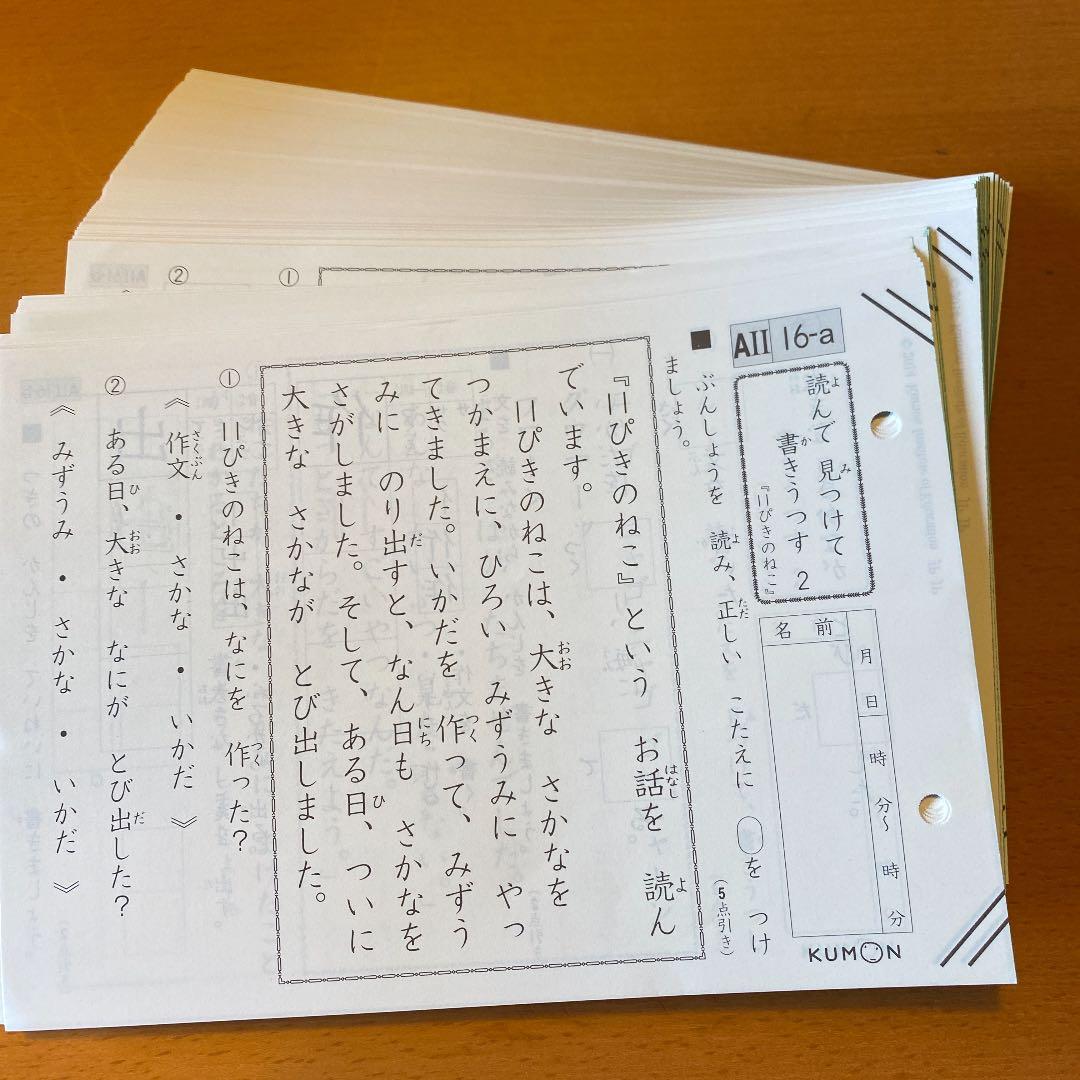 AII 16-a
よ み
読んで 見つけて
か
書きうつす 2
『11ぴきのねこ』
名前
月 日
時 分〜 時 分
KUMON
■ ぶんしょうを 読み、正しい こたえに ◯を つけ
よ ただ
ましょう。
(5点引き)
『11ぴきのねこ』という お話を 読ん
はなし よ
でいます。
11ぴきのねこは、大きな さかなを
おお
つかまえに、ひろい みずうみに やっ
てきました。いかだを 作って、みずう
つく
みに のり出すと、なん日も さかなを
だ にち
さがしました。そして、ある日、ついに
ひ
大きな さかなが とび出しました。
① 11ぴきのねこは、なにを 作った？
つく
《 作文 ・ さかな ・ いかだ 》
さくぶん
② ある日、大きな なにが とび出した？
ひ おお だ
《 みずうみ ・ さかな ・ いかだ 》
①
②